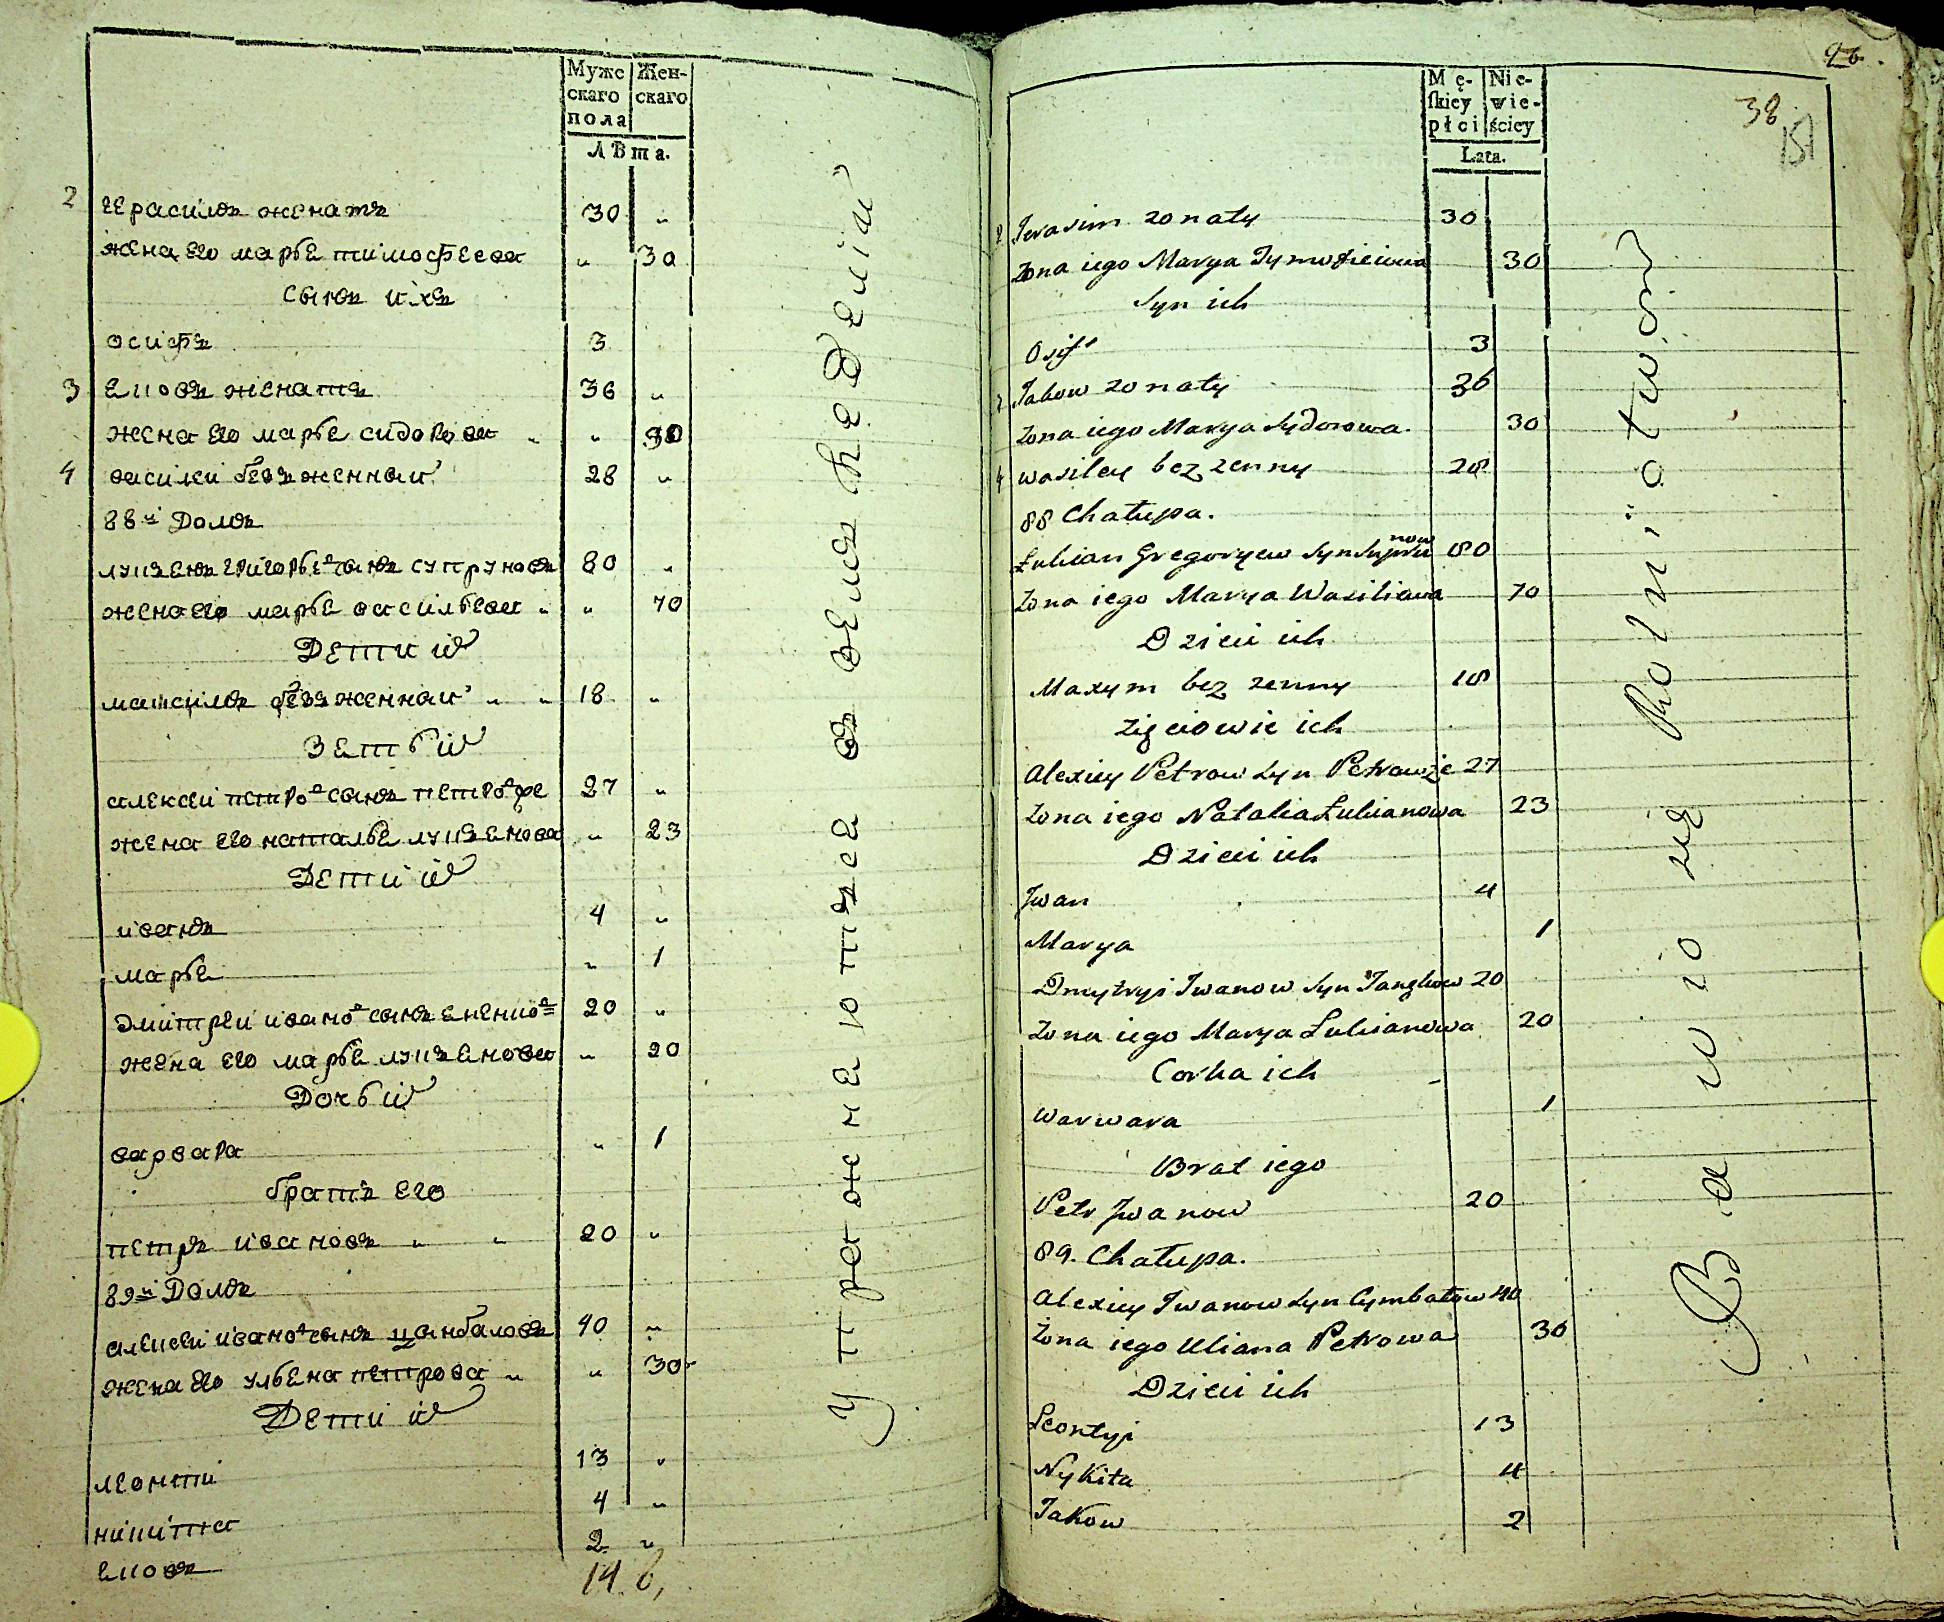 Мужс Жен-
скаго скаго
пола
ЛѢта.
2 герасимъ женатъ 30 „
жена его марье тимофеева „ 30
сынъ ихъ
осифъ 3
3 ековъ женатъ 36 „
жена его марье сидорова „ „ 30
4 василеи безъженнаи 28 „
88й Домъ
лукъенъ григорьевъ сынъ супруновъ 80 „
жена его марье васильева „ „ 70
Дети их
максимъ безъженнаи „ „ 18 „
Зеть их
алексеи петровъ сынъ 27 „
жена его наталье лукъенова „ 23
Дети их
иванъ 4 „
марье „ 1
дмитреи ивановъ сынъ 20 „
жена его марье лукъенова „ 20
Дочь их
варвара „ 1
братъ его
петръ ивановъ „ „ 20 „
89й Домъ
алексеи ивановъ сынъ цынбаловъ 40 „
жена его ульена петрова „ „ 30
Дети их
леонтии 13 „
никита 4 „
ековъ 2 „
14 6,
упражнеютъсе въ земледелии
96.
38
151
Mę- Nie-
skiey wie-
płci ściey
Lata.
2 Jerasim zonaty 30
Zona iego Marya Tymofieiewa 30
Syn ich
Osif 3
3 Jakow zonaty 36
Zona iego Marya Sydorowa. 30
4 Wasiley bez zenny 28
88 Chałupa.
Łukian Gregoryew Syn Suprunow 80
Zona iego Marya Wasiliewa 70
Dzieci ich
Maxym bez zenny 18
Zięciowie ich
Alexiey Petrow Syn 27
Zona iego Natalia Łukianowa 23
Dzieci ich
Jwan 4
Marya 1
Dmytryi Jwanow Syn 20
Zona iego Marya Łukianowa 20
Corka ich
Warwara 1
Brat iego
Petr Jwanow 20
89. Chałupa.
Alexiey Jwanow Syn Cymbałow 40
Zona iego Uliana Petrowa 30
Dzieci ich
Leontyi 13
Nykita 4
Jakow 2
Bawio się Rolnictwem